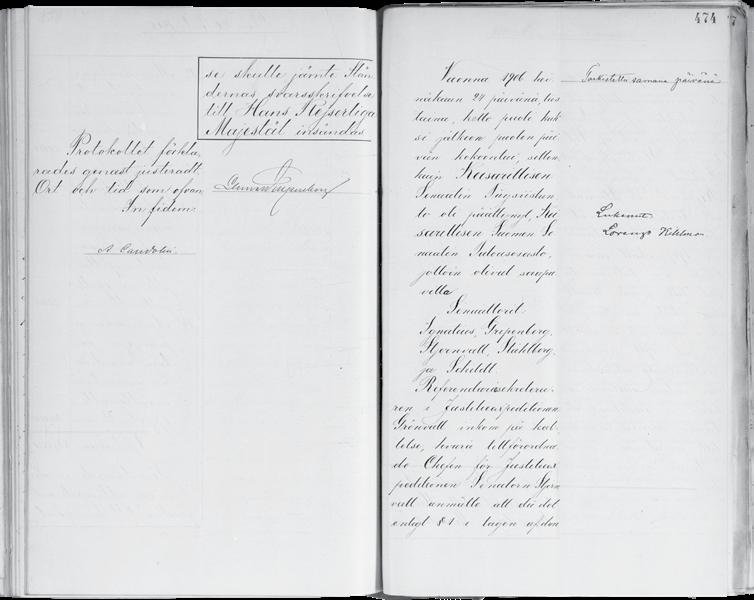 se skulle jämte Stän
dernas svarsskrifvelse
till Hans Kejserliga
Majestät insändas
Protokollet förkla,
rades genast justeradt.
Ort och tid som ofvan
In fidem:
A. Candolin.
474
Vuonna 1906 hei
näkuun 24 päivänä, tii
staina, kello puoli kak
si jälkeen puolen päi
vän kokoontui, sitten
kuin Keisarillisen
Senaatin Täysiistun
to oli päättynyt, Kei
sarillisen Suomen Se
naatin Talousosasto,
jolloin olivat saapu
villa
Senaattorit:
Ignatius, Gripenberg,
Hjernvall, Ståhlberg
ja Schildt.
Referendariesekretera
ren i Justitieexpeditionen
Grönvall inkom på kal
lelse, hvarvid tillförordna
de Chefen för Justitieex
peditionen Senatorn Hjern
vall anmälte att då det
enligt § 1 i lagen af den
Tarkistettu samana päivänä
Lukenut
Lorenzo Kihlman